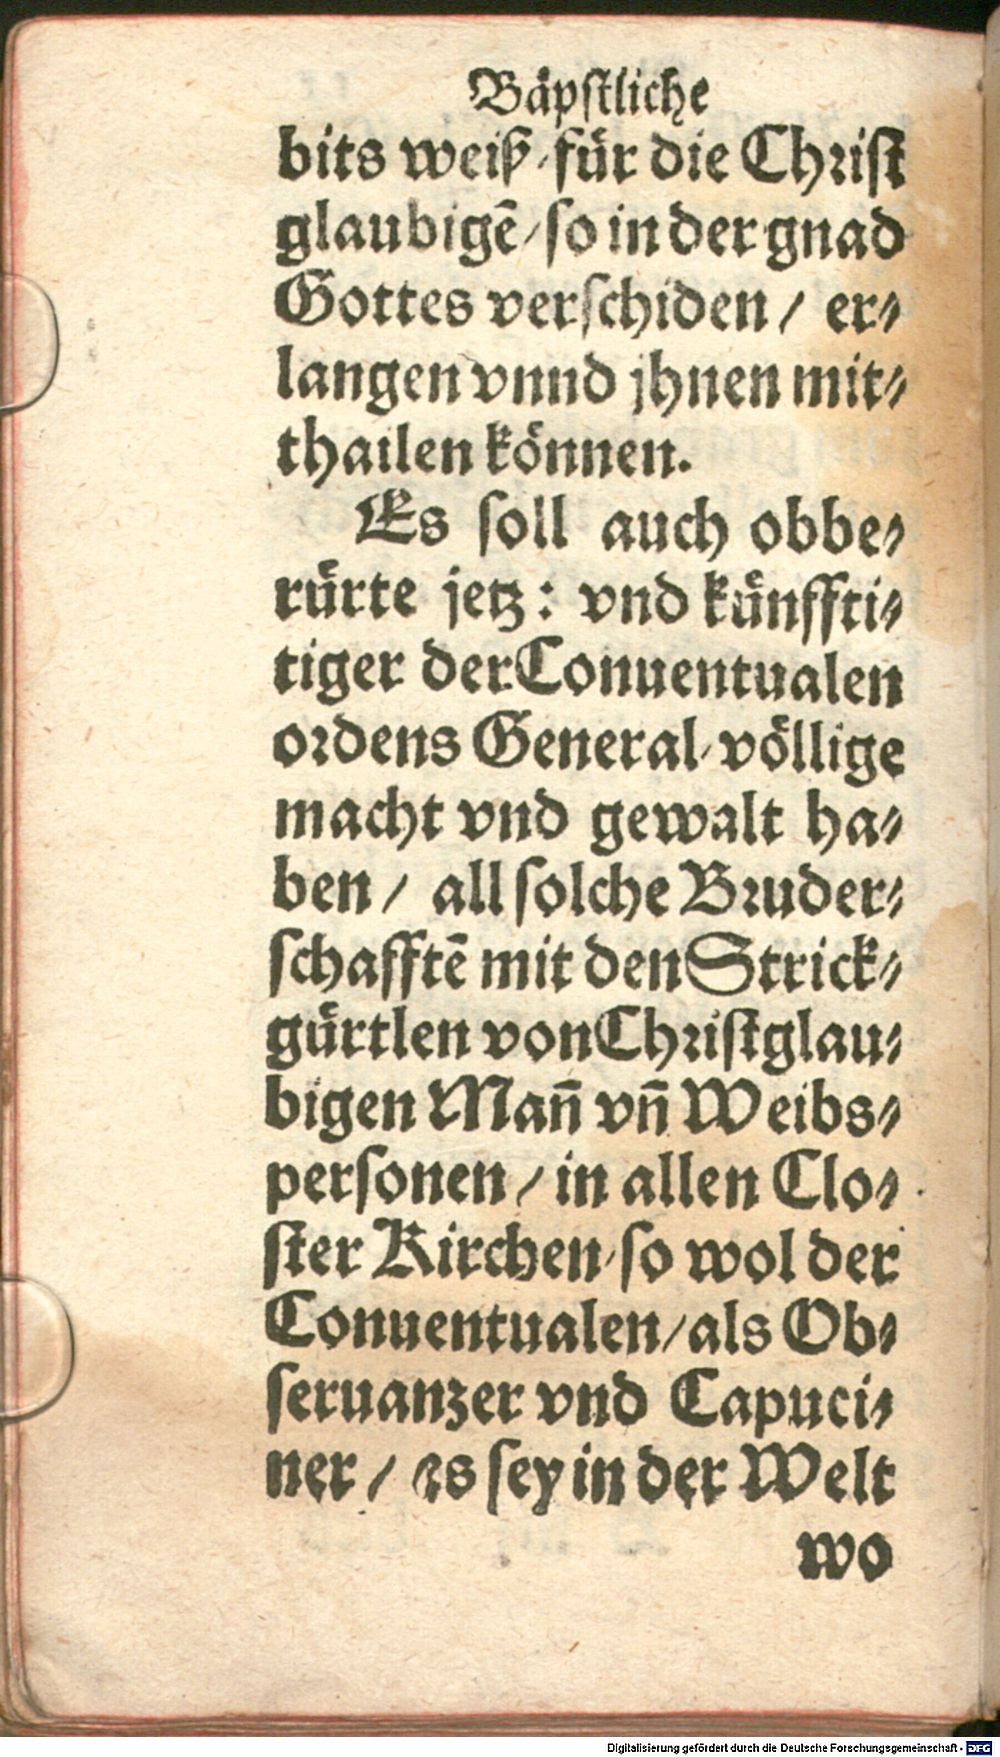 Bäpſtliche
bits weiß/für die Chriſt
glaubigē/ſo in der gnad
Gottes verſchiden / er⸗
langen vnnd jhnen mit⸗
thailen können.
Es ſoll auch obbe⸗
rürte jetz: vnd künffti⸗
tiger der Conuentualen
ordens General/völlige
macht vnd gewalt ha⸗
ben / all ſolche Bruder⸗
ſchafftē mit den Strick⸗
gürtlen von Chriſtglau⸗
bigen Mañ vñ Weibs⸗
perſonen / in allen Clo⸗
ſter Kirchen/ſo wol der
Conuentualen/als Ob⸗
ſeruanzer vnd Capuci⸗
ner / es ſey in der Welt
wo
Digitalisierung gefördert durch die Deutsche Forschungsgemeinschaft - DFG